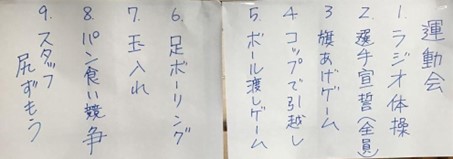 運動会
1. ラジオ体操
2. 選手宣誓(全員)
3 旗あげゲーム
4 コップで引越し
5. ボール渡しゲーム
6. 足ボーリング
7. 玉入れ
8. パン食い競争
9. スタッフ
尻ずもう